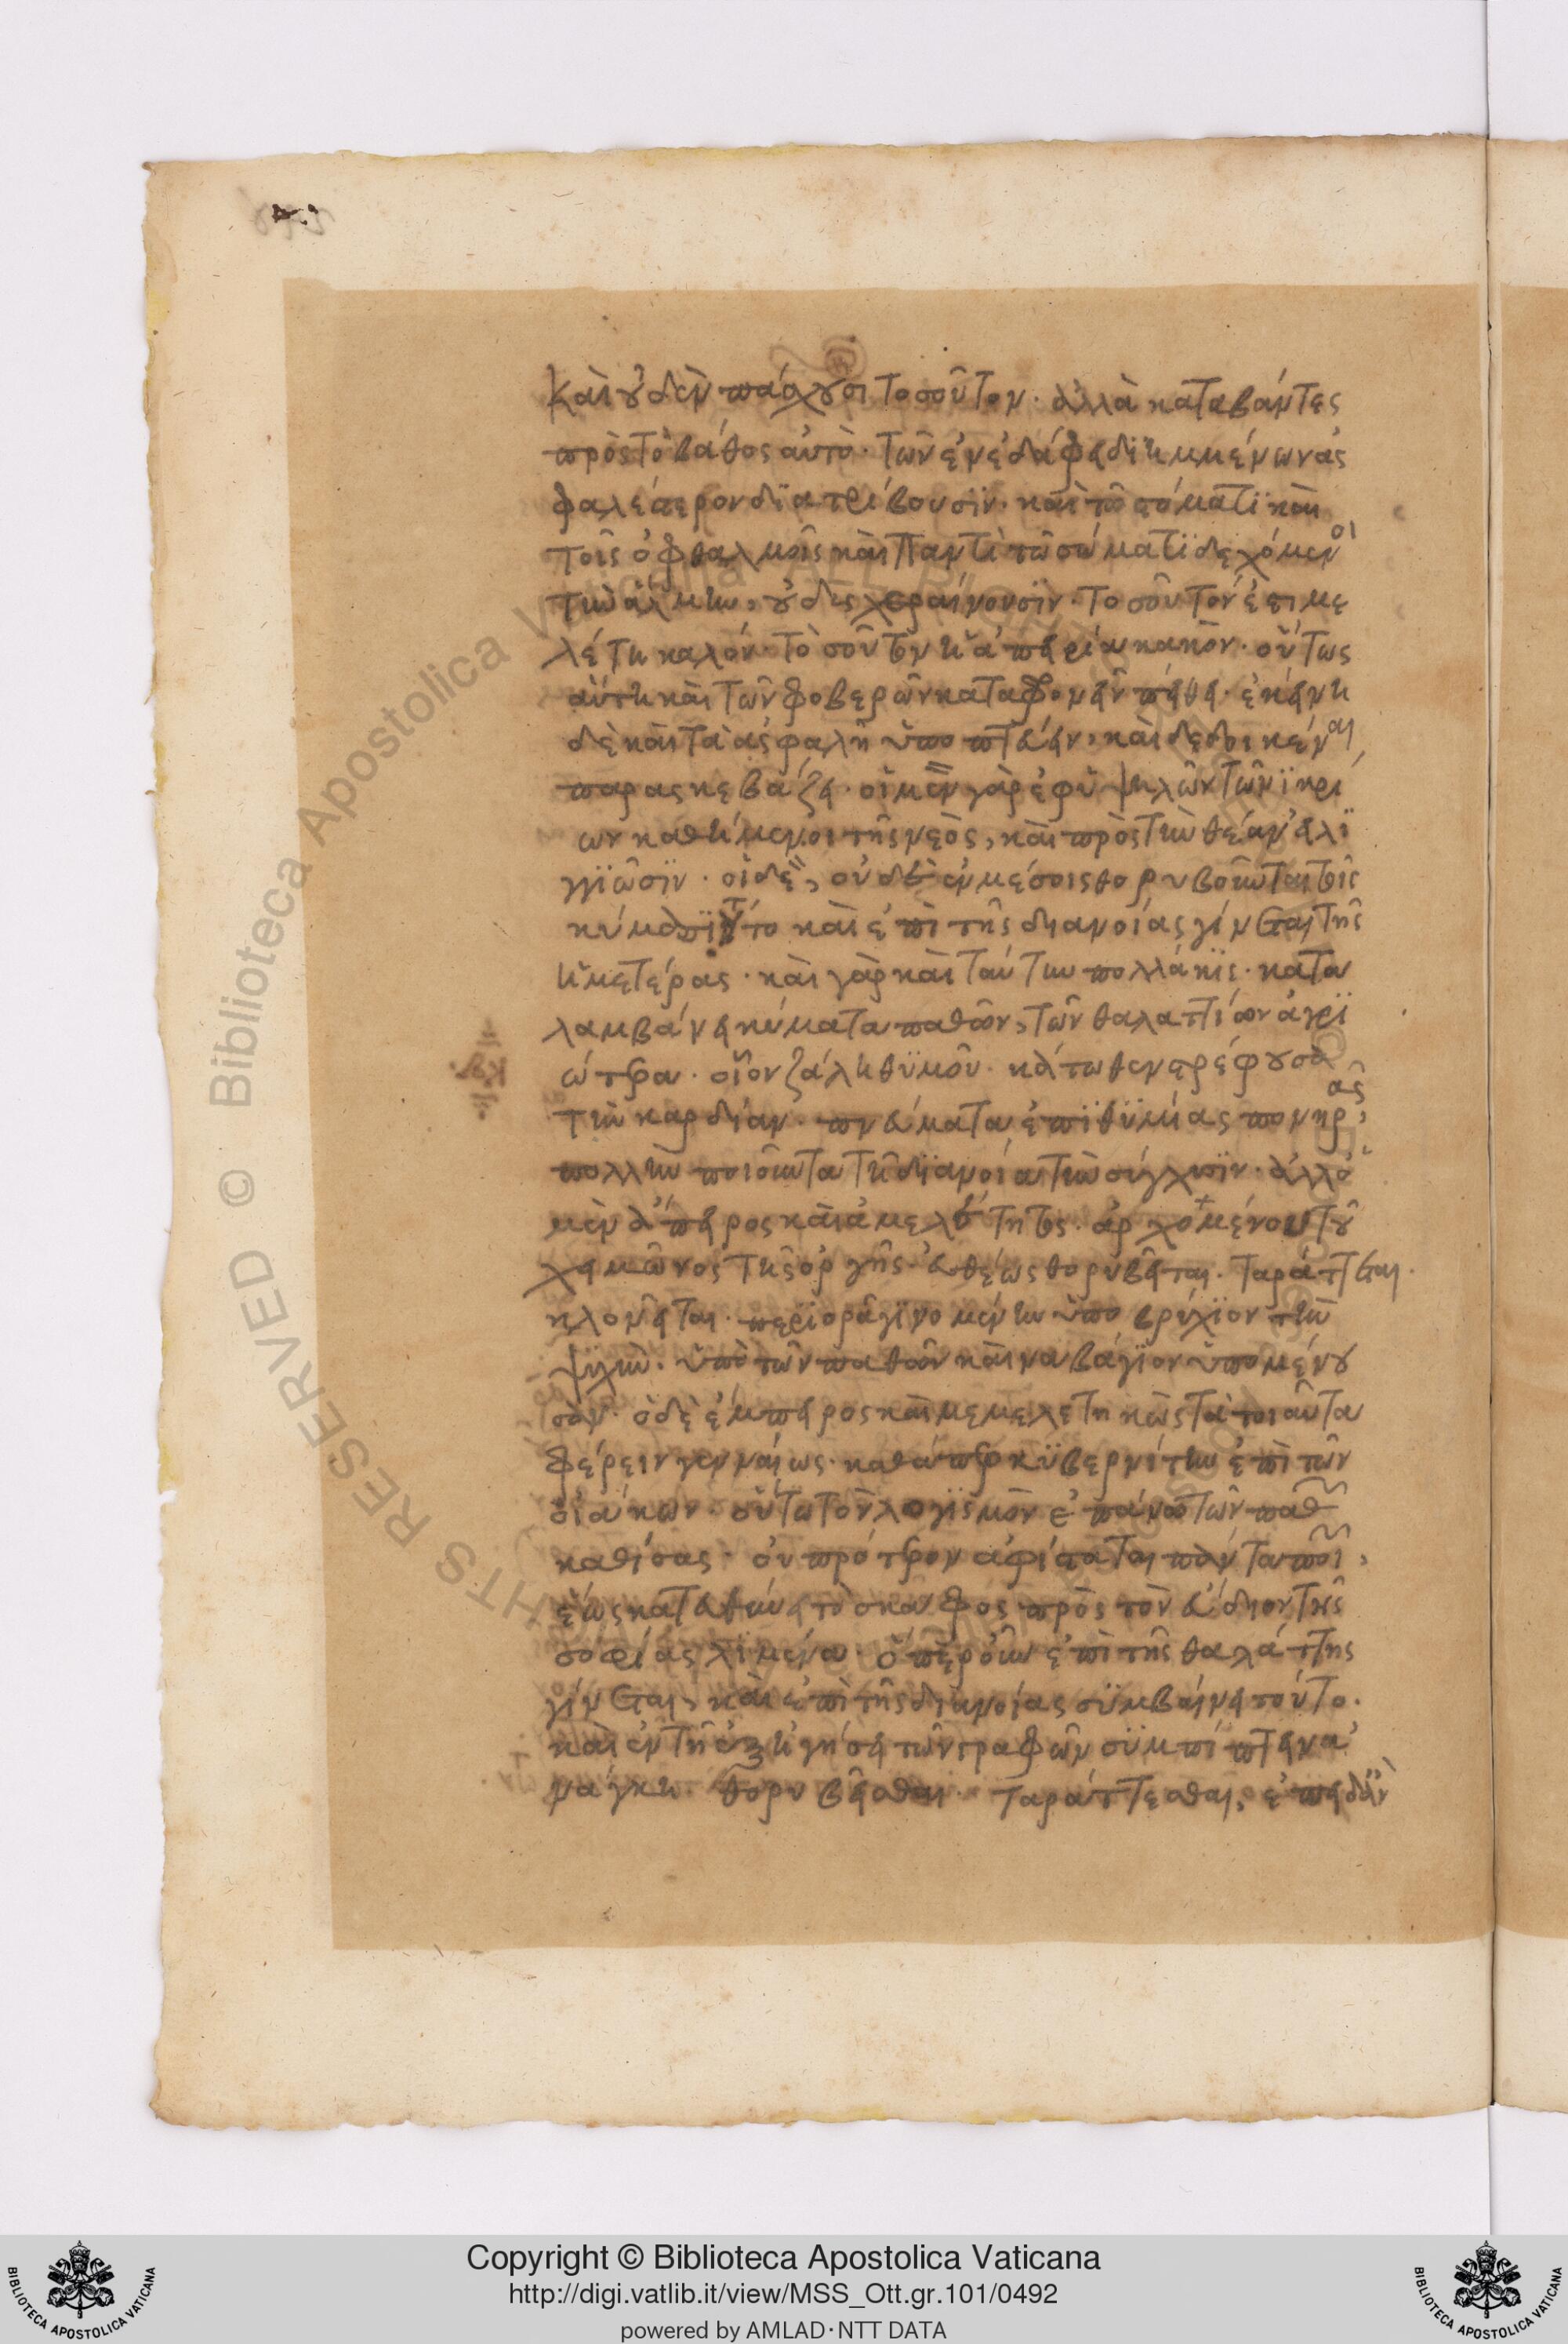 καὶ οὐδὲν πάσχουσι τοσοῦτον· ἀλλὰ καταβάντες
πρὸς τὸ βάθος αὐτὸ· τῶν ἐν ἐδάφει διημμένων ἀσ
φαλέστερον διατρίβουσϊν· καὶ τῶ στόματϊ καὶ
τοῖς ὀφθαλμοῖς καὶ παντὶ τῶ σώματϊ δεχόμενοι
τὴν ἅλμην, οὐ δυσχεραίνουσϊν· τοσοῦτόν ἐστι με
λέτη καλόν· τὸσοῦτον ἡ ἀπειρία κακὸν· οὕτως
αὕτη καὶ τῶν φοβερῶν καταφρονεῖν πείθει· ἐκείνη
δὲ καὶ τὰ ἀσφαλῆ ὑποπτεύειν, καὶ δεδοικέναι
παρασκεβάζει· οἱ μὲν γὰρ ἐφ ὑψηλῶν τῶν ϊκρί
ων καθήμενοι τῆς νεὸς, καὶ πρὸς τὴν θέαν ϊλϊ
γγϊῶσϊν· οἱ δὲ, οὐδὲ ἐν μέσοις θορυβοῦνται τοῖς
κύμασϊ τοῦτο καὶ ἐπὶ τῆς διανοίας γίνεται τῆς
ἡμετέρας· καὶ γὰρ καὶ ταύτην πολλάκϊς· κατα
λαμβάνει κύματα παθῶν, τῶν θαλαττίων ἀγρϊ
ώτερα· οἷον ζάλη θϋμοῦ· κάτωθεν στρέφουσα
τὴν καρδίαν· πνεύματα ἐπϊθϋμίας πονηρᾶς,
πολλὴν ποιοῦντα τῆ διανοία τὴν σύγχυσϊν· ἀλλ ὁ
μὲν ἄπειρος καὶ ἀμελέτητος· ἀρχομένου τοῦ
χειμῶνος τῆς ὀργῆς· εὐθέως θορυβεῖται· ταράττεται·
κλονεῖται· περϊορᾶ γϊνομένην ὑποβρύχϊον τὴν
ψυχὴν· ὑπὸ τῶν παθῶν καὶ ναβάγϊον ὑπομένου
σαν· ὁ δὲ ἔμπειρος καὶ μεμελετηκὼς τὰ τοιαῦτα
φέρειν γενναίως· καθάπερ κϋβερνίτην ἐπὶ τῶν
οἰάκων· οὕτω τὸν λογϊσμὸν ἐπάνω τῶν παθῶν
καθίσας· οὐ πρότερον ἀφίσταται πάντα ποιῶν,
ἕως κατευθύνει τὸ σκάφος πρὸς τὸν εὔδιον τῆς
σοφίας λϊμένα· ὅπερ οὖν ἐπὶ τῆς θαλάττης
γίνεται, καὶ ἐπὶ τῆς διανοίας σϋμβαίνει τοῦτο·
καὶ ἐν τῆ ἐξηγήσει τῶν γραφῶν σϋμπίπτειν ἀ
νάγκη· θορυβεῖσθαι· ταράττεσθαι, ἐπειδὰν